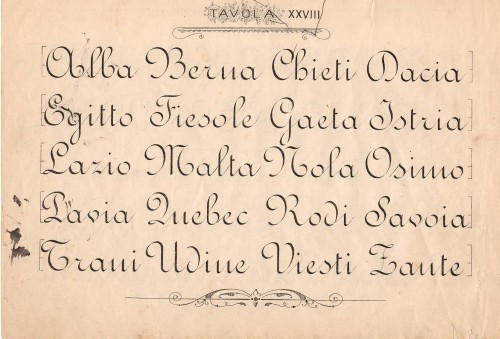 TAVOLA XXVIII
Alba Berna Chieti Dacia
Egitto Fiesole Gaeta Istria
Lazio Malta Nola Osimo
Pavia Quebec Rodi Savoia
Trani Udine Viesti Zante